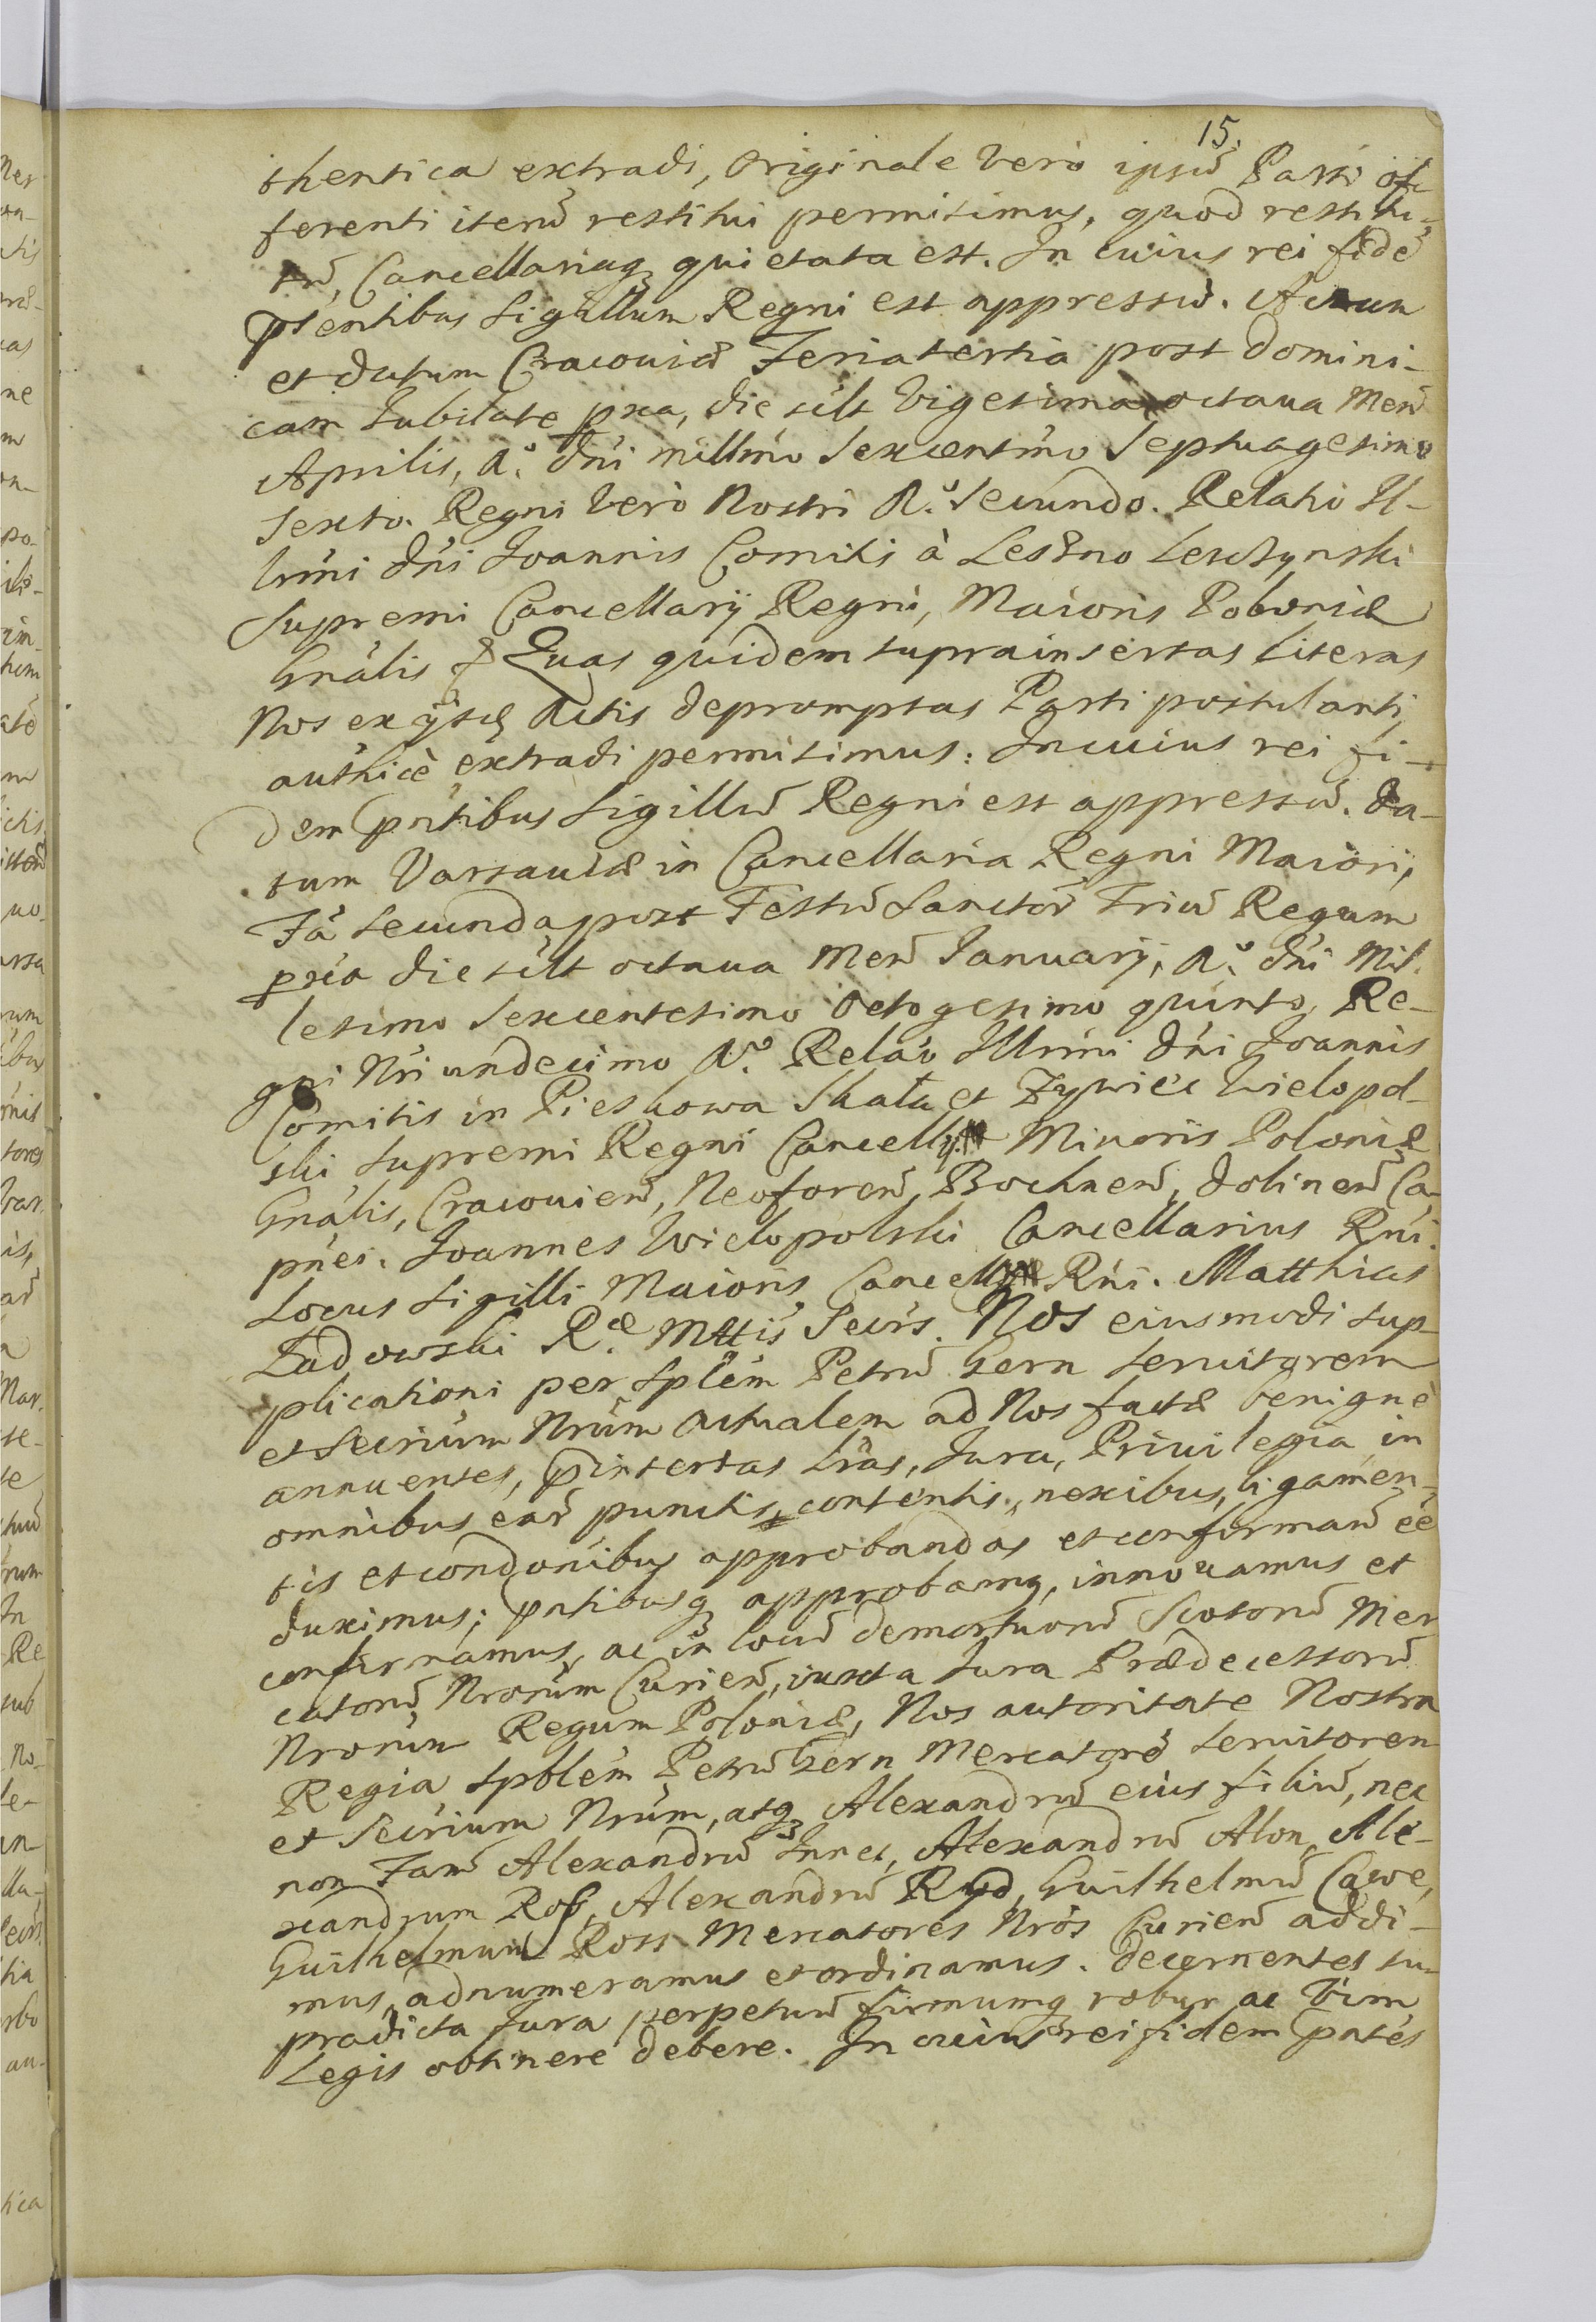 15.
thentica extradi, Originale verò ipsū Parti of-
ferenti iterū restitui permisimus, quod restitu-
tū, Cancellariaq₃ quietata est. In cuius rei fidē
psentibus Sigillum Regni est appressū. Actum
et datum Cracouiæ Feria tertia post Domini-
cam Jubilate pxa, die silt Vigesima octaua Men̄
Aprilis, A.º Dn̄i millm̄o Sexcentm̄o Septuagesimo
sexto. Regni verò Nostri A.º Secundo. Relatio Il-
lrm̄i Dn̄i Joannis Comitis à Leszno Leszczynski
Supremi Cancellarij Regni, Maioris Poloniæ
Gnālis & Quas quidem suprainsertas literas
Nos ex ijsd Actis depromptas Parti postulanti,
authīcè extradi permisimus: In cuius rei fi-
dem pntibus Sigillū Regni est appressū. Da-
tum Varsauiæ in Cancellaria Regni Maiori,
Fā secunda post Festū Sanctor̄ Triū Regum
pxia die silt octaua Men̄ Januarij, A.º Dn̄i Mil-
lesimo Sexcentesimo Octogesimo quinto, Re-
gni Nri undecimo A.º Relāo Illrmi Dn̄i Joannis
Comitis in Pieskowa Skała et Zywiec Wielopol-
ski Supremi Regni Cancellrij Minoris Poloniæ
Gnālis, Cracouien̄, Neoforen̄, Bochnen̄, Dolinen̄ Ca-
pnei. Joannes Wielopolski Cancellarius Rni.
Locus Sigilli Maioris Cancellæ Rni. Matthias
Ładowski R.æ Mttis Secrs. Nos eiusmodi sup-
plicationi per Splēm Petrū Gern Seruitorem
et Secrium Nrum Actualem ad Nos factæ benignè
annuentes, pinsertas Lrās, Jura, Priuilegia in
omnibus ear̄ punctis, contentis, nexibus, ligamen-
tis et condōnibus approbandas et confirman̄ eē
duximus; pntibusq₃ approbamq, innouamus et
confirmamus, ac in locū demortuorū Scotorū Mer
catorū Nrorum Curien̄, iuxta Jura Prædecessorū
Nrorum Regum Poloniæ, Nos autoritate Nostra
Regia Spblēm Petrū Gern Mercatorē Seruitorem
et Secrium Nrum, atq₃ Alexandrū eius filiū, nec
non Fam̄ Alexandrū Innes, Alexandrū Alon, Ale-
xandrum Roß, Alexandrū Ryd, Guilhelmū Cawe,
Guilhelmum Ross Mercatores Nros Curien̄ addi-
mus, adnumeramus et ordinamus. Decernentes su-
pradicta Jura perpetuū firmumq₃ robur ac vim
Legis obtinere debere. In cuius rei fidem pntēs